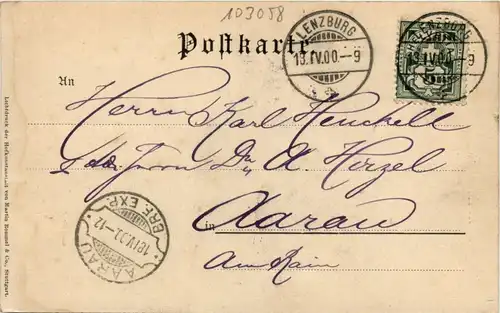 103058
LENZBURG
13.IV.00-9
LENZBURG
13.IV.00-9
Postkarte
An
Herrn Karl Henckell
Herrn Dr. A. Hirzel
in Aarau
Am Rain
AARAU
BRF. EXP.
Lichtdruck der Hofkunstanstalt von Martin Rommel & Co., Stuttgart.